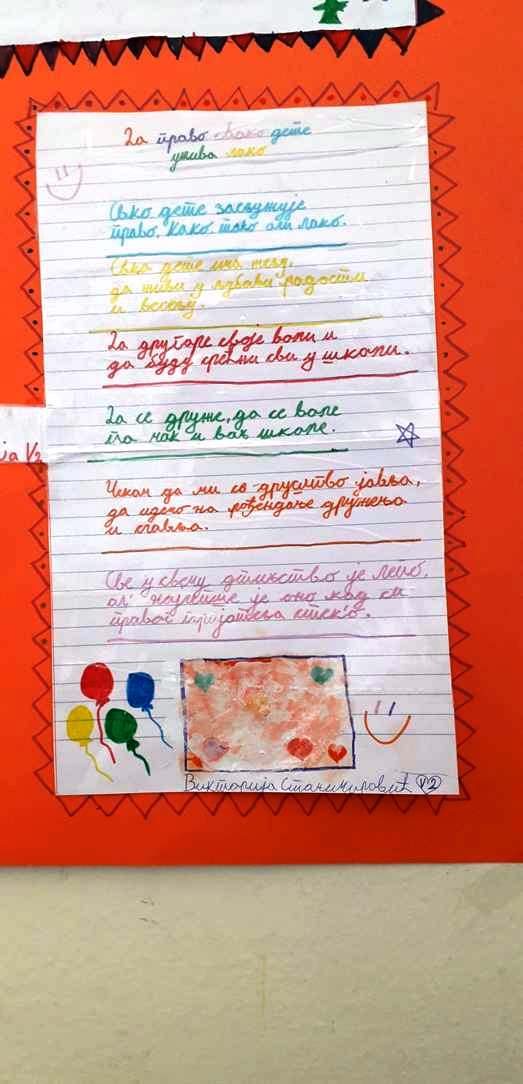 Да право свако дете
ужива лако
Свако дете заслужује
право, како тако али лако.
Свако дете има жељу,
да живи у љубави радости
и весељу.
Да другаре своје воли и
да буду срећни сви у школи.
Да се друже, да се воле
па чак и ван школе.
Чекам да ми се друштво јавља,
да идемо на рођендане дружења
и славља.
Све у свему, детињство је лепо,
ал' најлепше је оно кад си
правог пријатеља стек'о.
Викторија Станимировић V2
ја V2